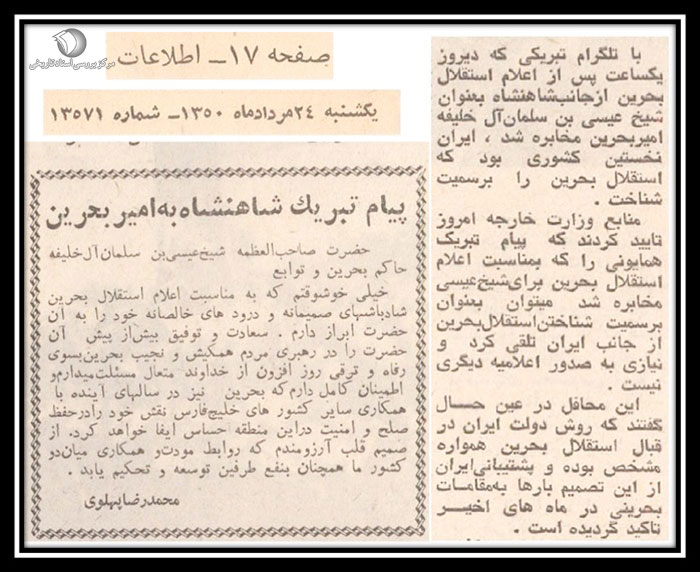 مرکز بررسی اسناد تاریخی
صفحه ۱۷ــ اطلاعات
یکشنبه ۲۴مردادماه ۱۳۵۰ــ شماره ۱۳۵۷۱
پیام تبریك شاهنشاه به‌امیر بحرین
حضرت صاحب‌العظمه شیخ‌عیسی‌بن سلمان‌آل‌خلیفه
حاکم بحرین و توابع
خیلی خوشوقتم که به مناسبت اعلام استقلال بحرین
شادباشهای صمیمانه و درود های خالصانه خود را به آن
حضرت ابراز دارم . سعادت و توفیق بیش‌از پیش آن
حضرت را در رهبری مردم همکیش و نجیب بحرین‌بسوی
رفاه و ترقی روز افزون از خداوند متعال مسئلت‌میدارم‌و
اطمینان کامل دارم‌که بحرین نیز در سالهای آینده با
همکاری سایر کشور های خلیج‌فارس نقش خود رادرحفظ
صلح و امنیت دراین منطقه حساس ایفا خواهد کرد. از
صمیم قلب آرزومندم که روابط مودت‌و همکاری میان‌دو
کشور ما همچنان بنفع طرفین توسعه و تحکیم یابد .
محمدرضاپهلوی
با تلگرام تبریکی که دیروز
یکساعت پس از اعلام استقلال
بحرین ازجانب‌شاهنشاه بعنوان
شیخ عیسی بن سلمان‌آل خلیفه
امیربحرین مخابره شد ، ایران
نخستین کشوری بود که
استقلال بحرین را برسمیت
شناخت .
منابع وزارت خارجه امروز
تایید کردند که پیام تبریک
همایونی را که بمناسبت اعلام
استقلال بحرین برای‌شیخ‌عیسی
مخابره شد میتوان بعنوان
برسمیت شناختن‌استقلال‌بحرین
از جانب ایران تلقی کرد و
نیازی به صدور اعلامیه دیگری
نیست .
این محافل در عین حال
گفتند که روش دولت ایران در
قبال استقلال بحرین همواره
مشخص بوده و پشتیبانی‌ایران
از این تصمیم بارها به‌مقامات
بحرینی در ماه های اخیر
تاکید گردیده است .